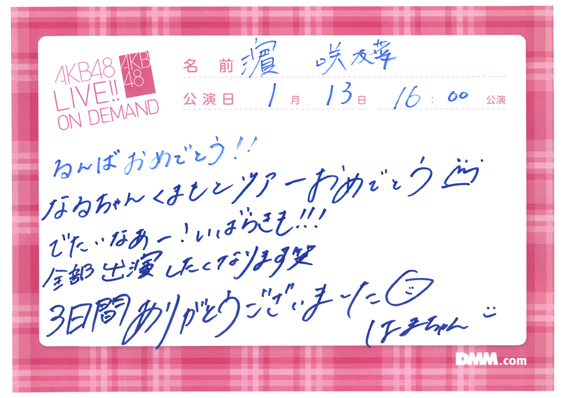 AKB48
LIVE!!
ON DEMAND
AKB
48
名前 濵 咲友菜
公演日 1月 13日 16:00 公演
るんばおめでとう!!
なるちゃんくまもとツアーおめでとう
でたいなあー!いばらきも!!!
全部出演したくなります笑
3日間ありがとうございました
はまちゃん
DMM.com